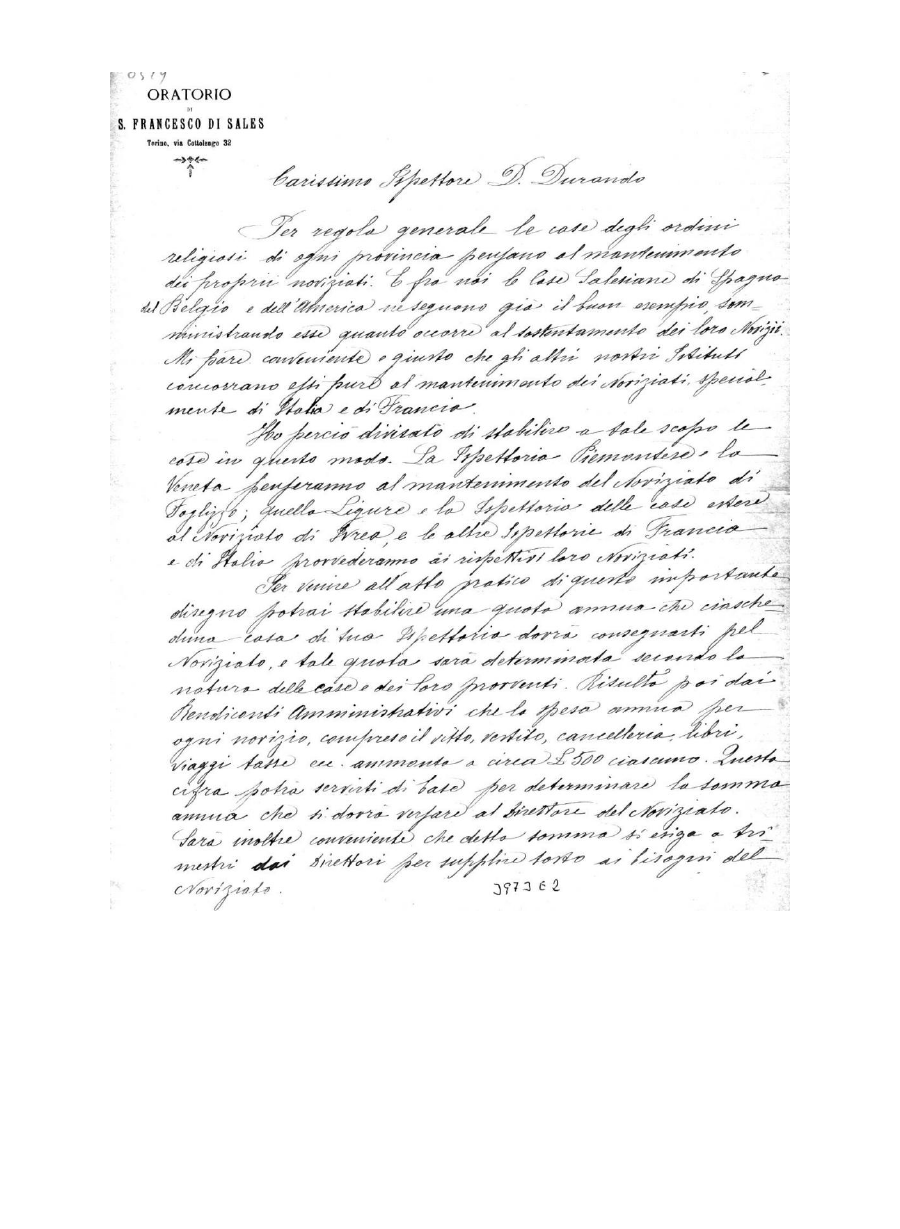 ORATORIO
DI
S. FRANCESCO DI SALES
Torino, via Cottolengo 32
Carissimo Ispettore D. Durando
Per regola generale le case degli ordini
religiosi di ogni provincia pensano al mantenimento
dei proprii noviziati. E fra noi le Case Salesiane di Spagna
del Belgio e dell'America ne seguono già il buon esempio, som-
ministrando esse quanto occorre al sostentamento dei loro Novizii.
Mi pare conveniente e giusto che gli altri nostri Istituti
concorrano essi pure al mantenimento dei Noviziati special-
mente di Italia e di Francia.
Ho perciò divisato di stabilire a tale scopo le
cose in questo modo. La Ispettoria Piemontese e la
Veneta penseranno al mantenimento del Noviziato di
Foglizzo; quella Ligure e la Ispettoria delle case estere
al Noviziato di Ivrea, e le altre Ispettorie di Francia
e di Italia provvederanno ai rispettivi loro Noviziati.
Per venire all'atto pratico di questo importante
disegno potrai stabilire una quota annua che ciasche-
duna casa di tua Ispettoria dovrà consegnarti pel
Noviziato, e tale quota sarà determinata secondo la
natura delle case e dei loro proventi. Risultò poi dai
Rendiconti Amministrativi che la spesa annua per
ogni novizio, compreso il vitto, vestito, cancelleria, libri,
viaggi tasse ecc. ammonta a circa L 500 ciascuno. Questa
cifra potrà servirti di base per determinare la somma
annua che si dovrà versare al Direttore del Noviziato.
Sarà inoltre conveniente che detta somma si esiga a tri-
mestri dai Direttori per supplire tosto ai bisogni del
Noviziato.
3973 E 2